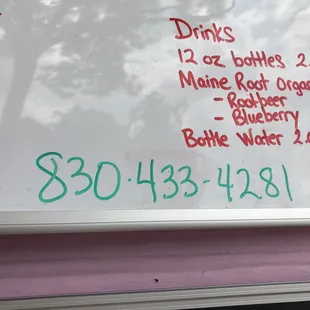 Drinks
12 oz bottles 2.
Maine Root Orga
- Rootbeer
- Blueberry
Bottle Water 2.
830·433-4281